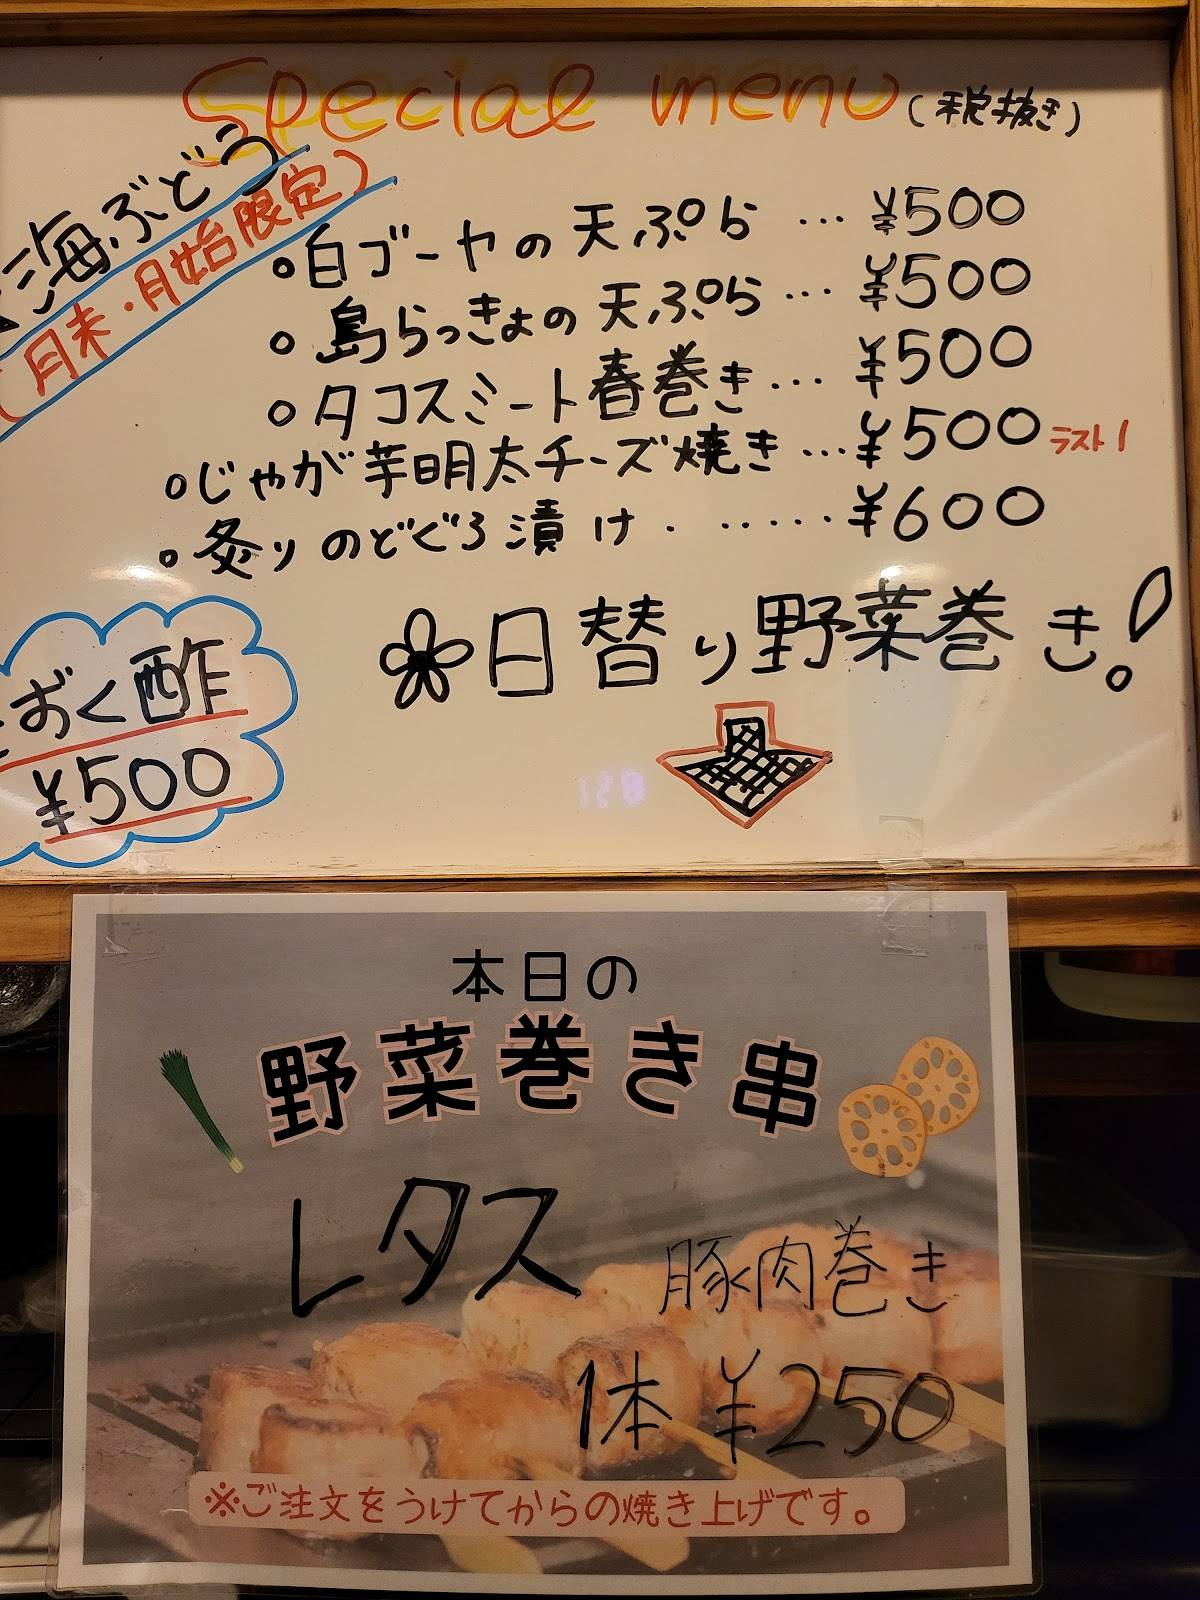 Special menu (税抜き)
海ぶどう
(月末・月始限定)
○白ゴーヤの天ぷら…¥500
○島らっきょの天ぷら…¥500
○タコスミート春巻き…¥500
○じゃが芋明太チーズ焼き…¥500 ラスト1
○炙りのどぐろ漬け.……¥600
ずく酢
¥500
日替り野菜巻き!
本日の
野菜巻き串
レタス
豚肉巻き
1本 ¥250
※ご注文をうけてからの焼き上げです。